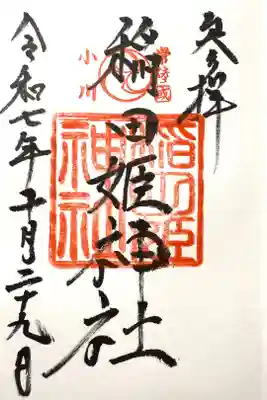 奉拝
小川
稲田姫神社
稲田姫
神社
令和七年十月二十九日